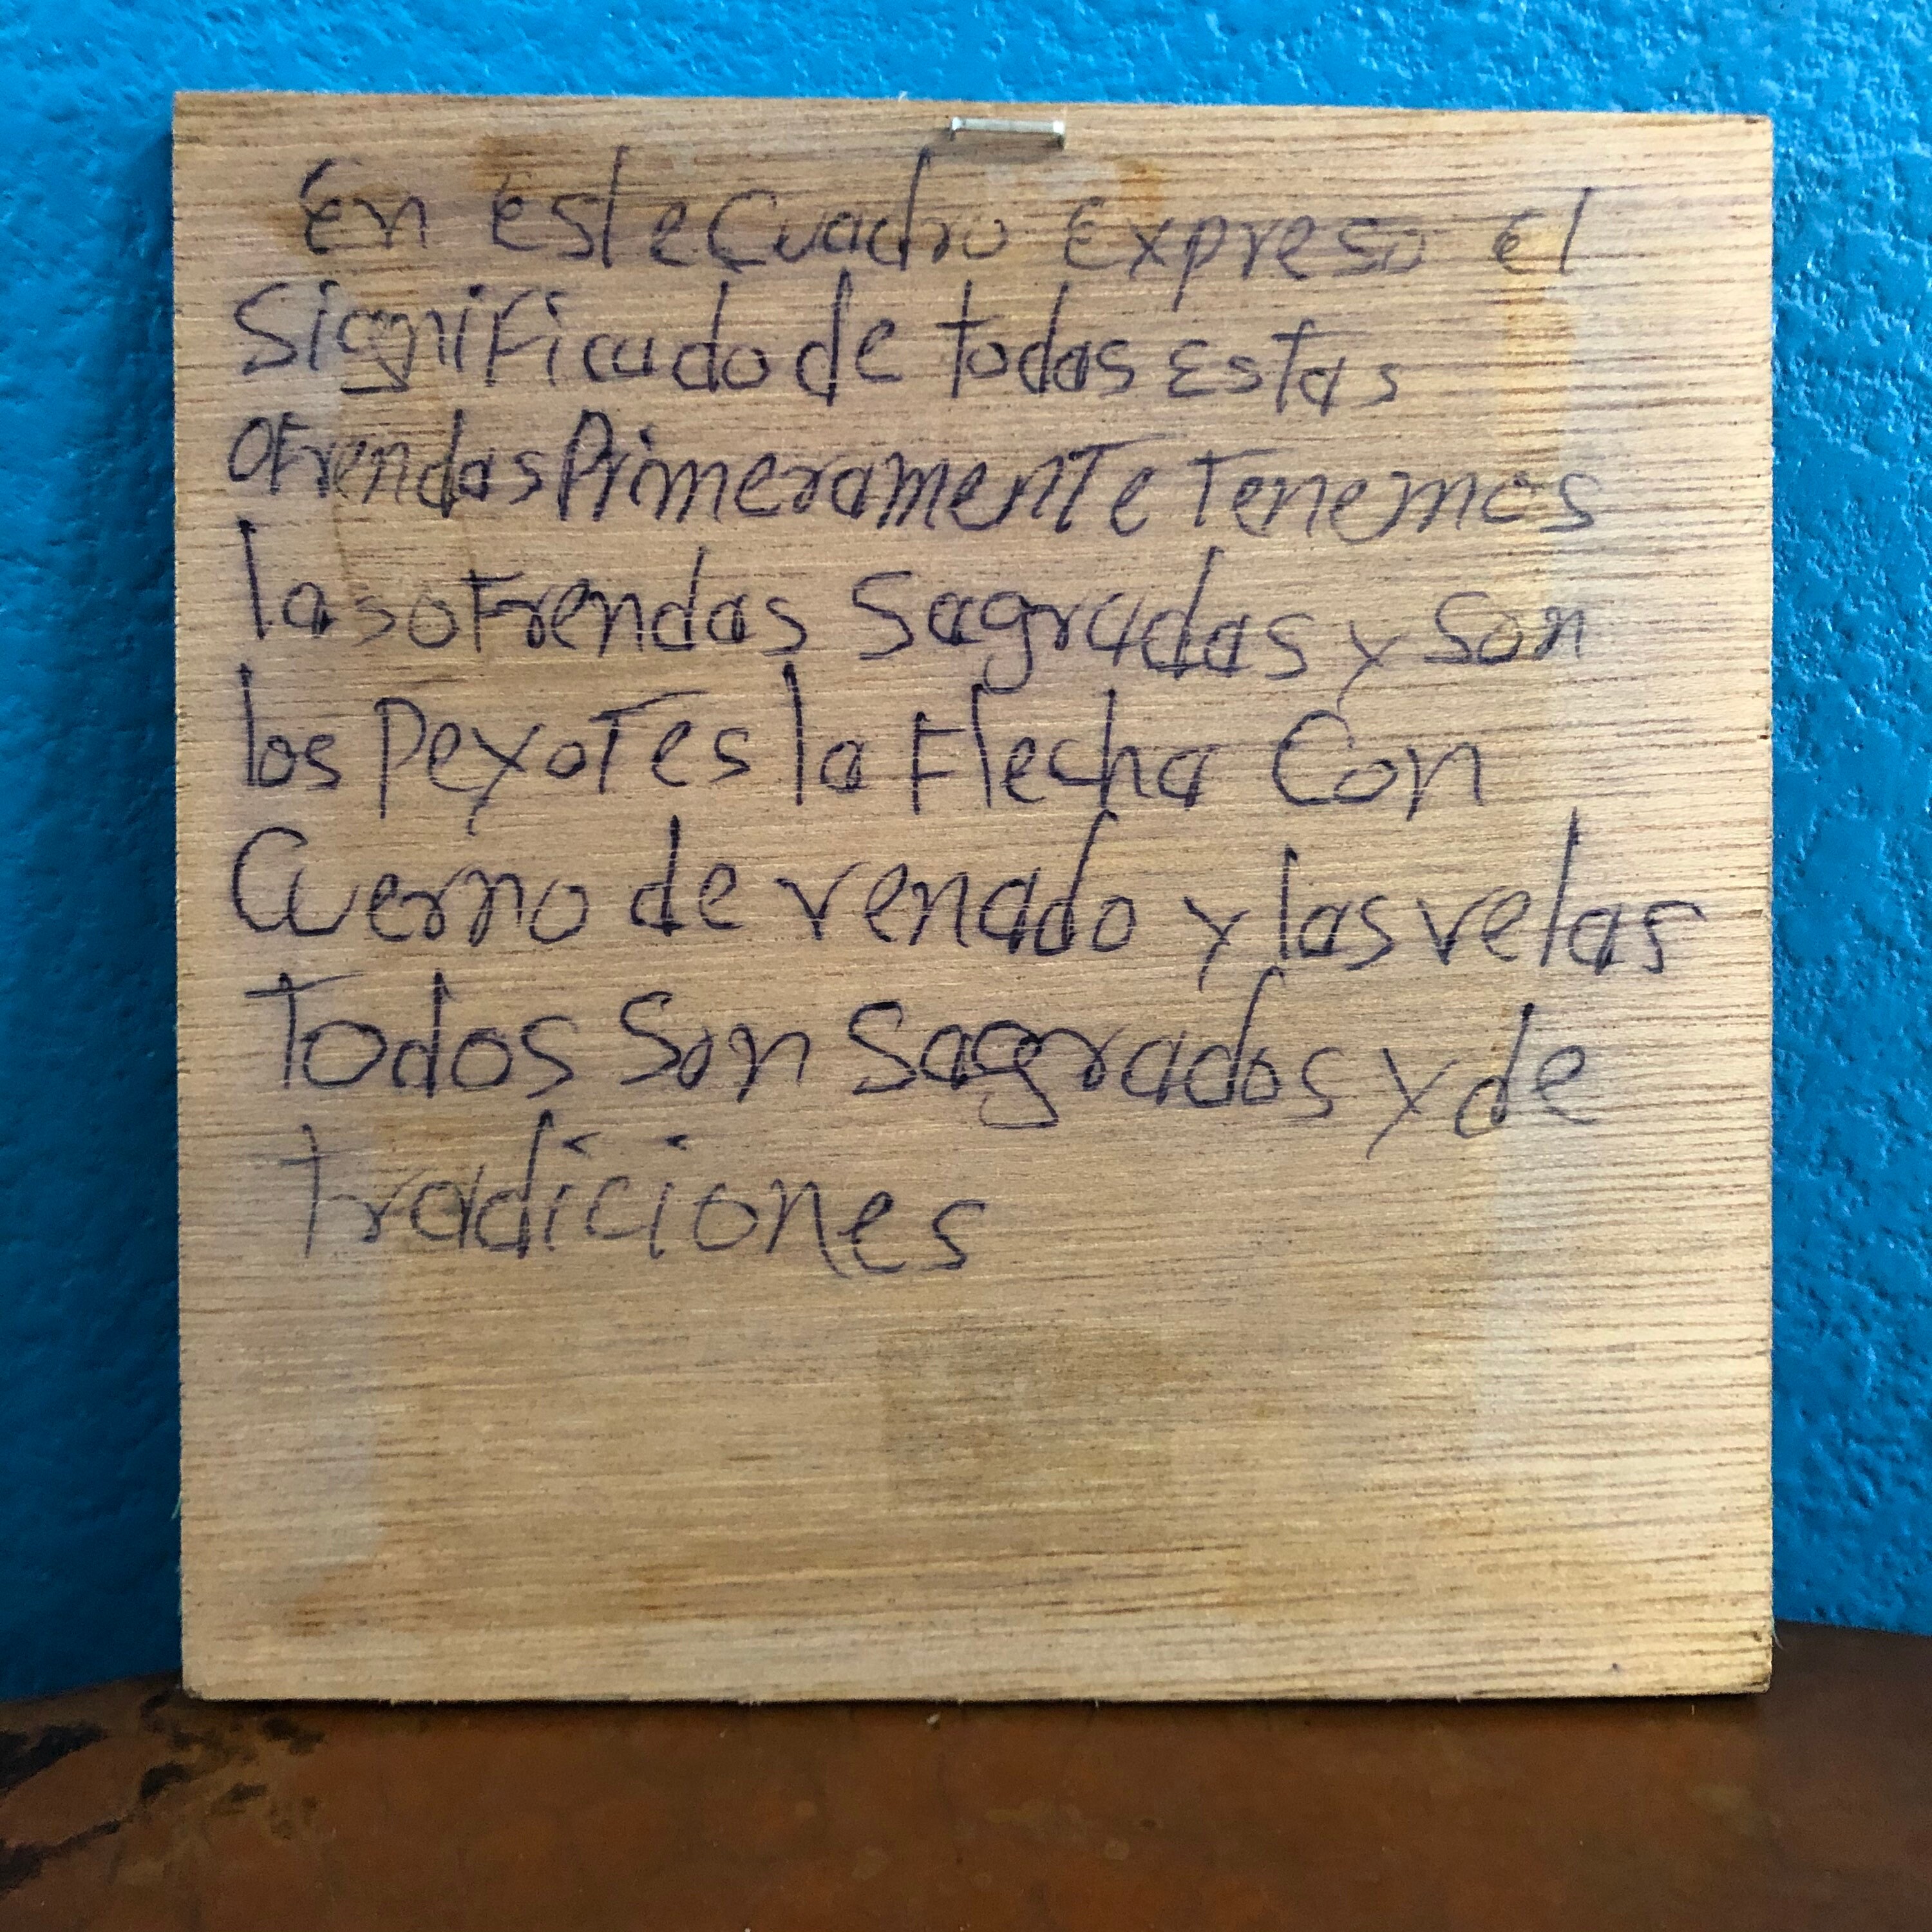 En este cuadro expreso el
significado de todas estas
ofrendas Primeramente Tenemos
las ofrendas sagradas y son
los Peyotes la Flecha Con
Cuerno de venado y las velas
Todos Son Sagrados y de
tradiciones